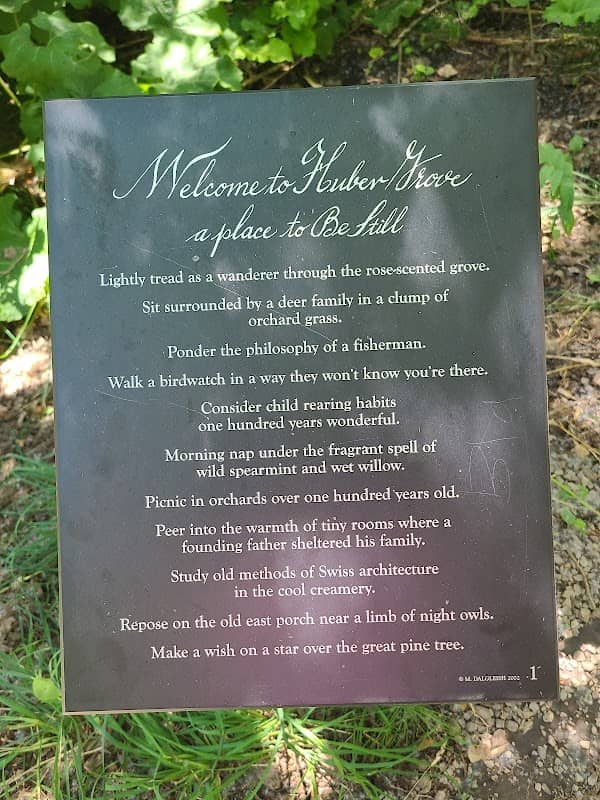 Welcome to Huber Grove
a place to Be Still
Lightly tread as a wanderer through the rose-scented grove.
Sit surrounded by a deer family in a clump of
orchard grass.
Ponder the philosophy of a fisherman.
Walk a birdwatch in a way they won't know you're there.
Consider child rearing habits
one hundred years wonderful.
Morning nap under the fragrant spell of
wild spearmint and wet willow.
Picnic in orchards over one hundred years old.
Peer into the warmth of tiny rooms where a
founding father sheltered his family.
Study old methods of Swiss architecture
in the cool creamery.
Repose on the old east porch near a limb of night owls.
Make a wish on a star over the great pine tree.
© M. DALGLEISH 2002 1